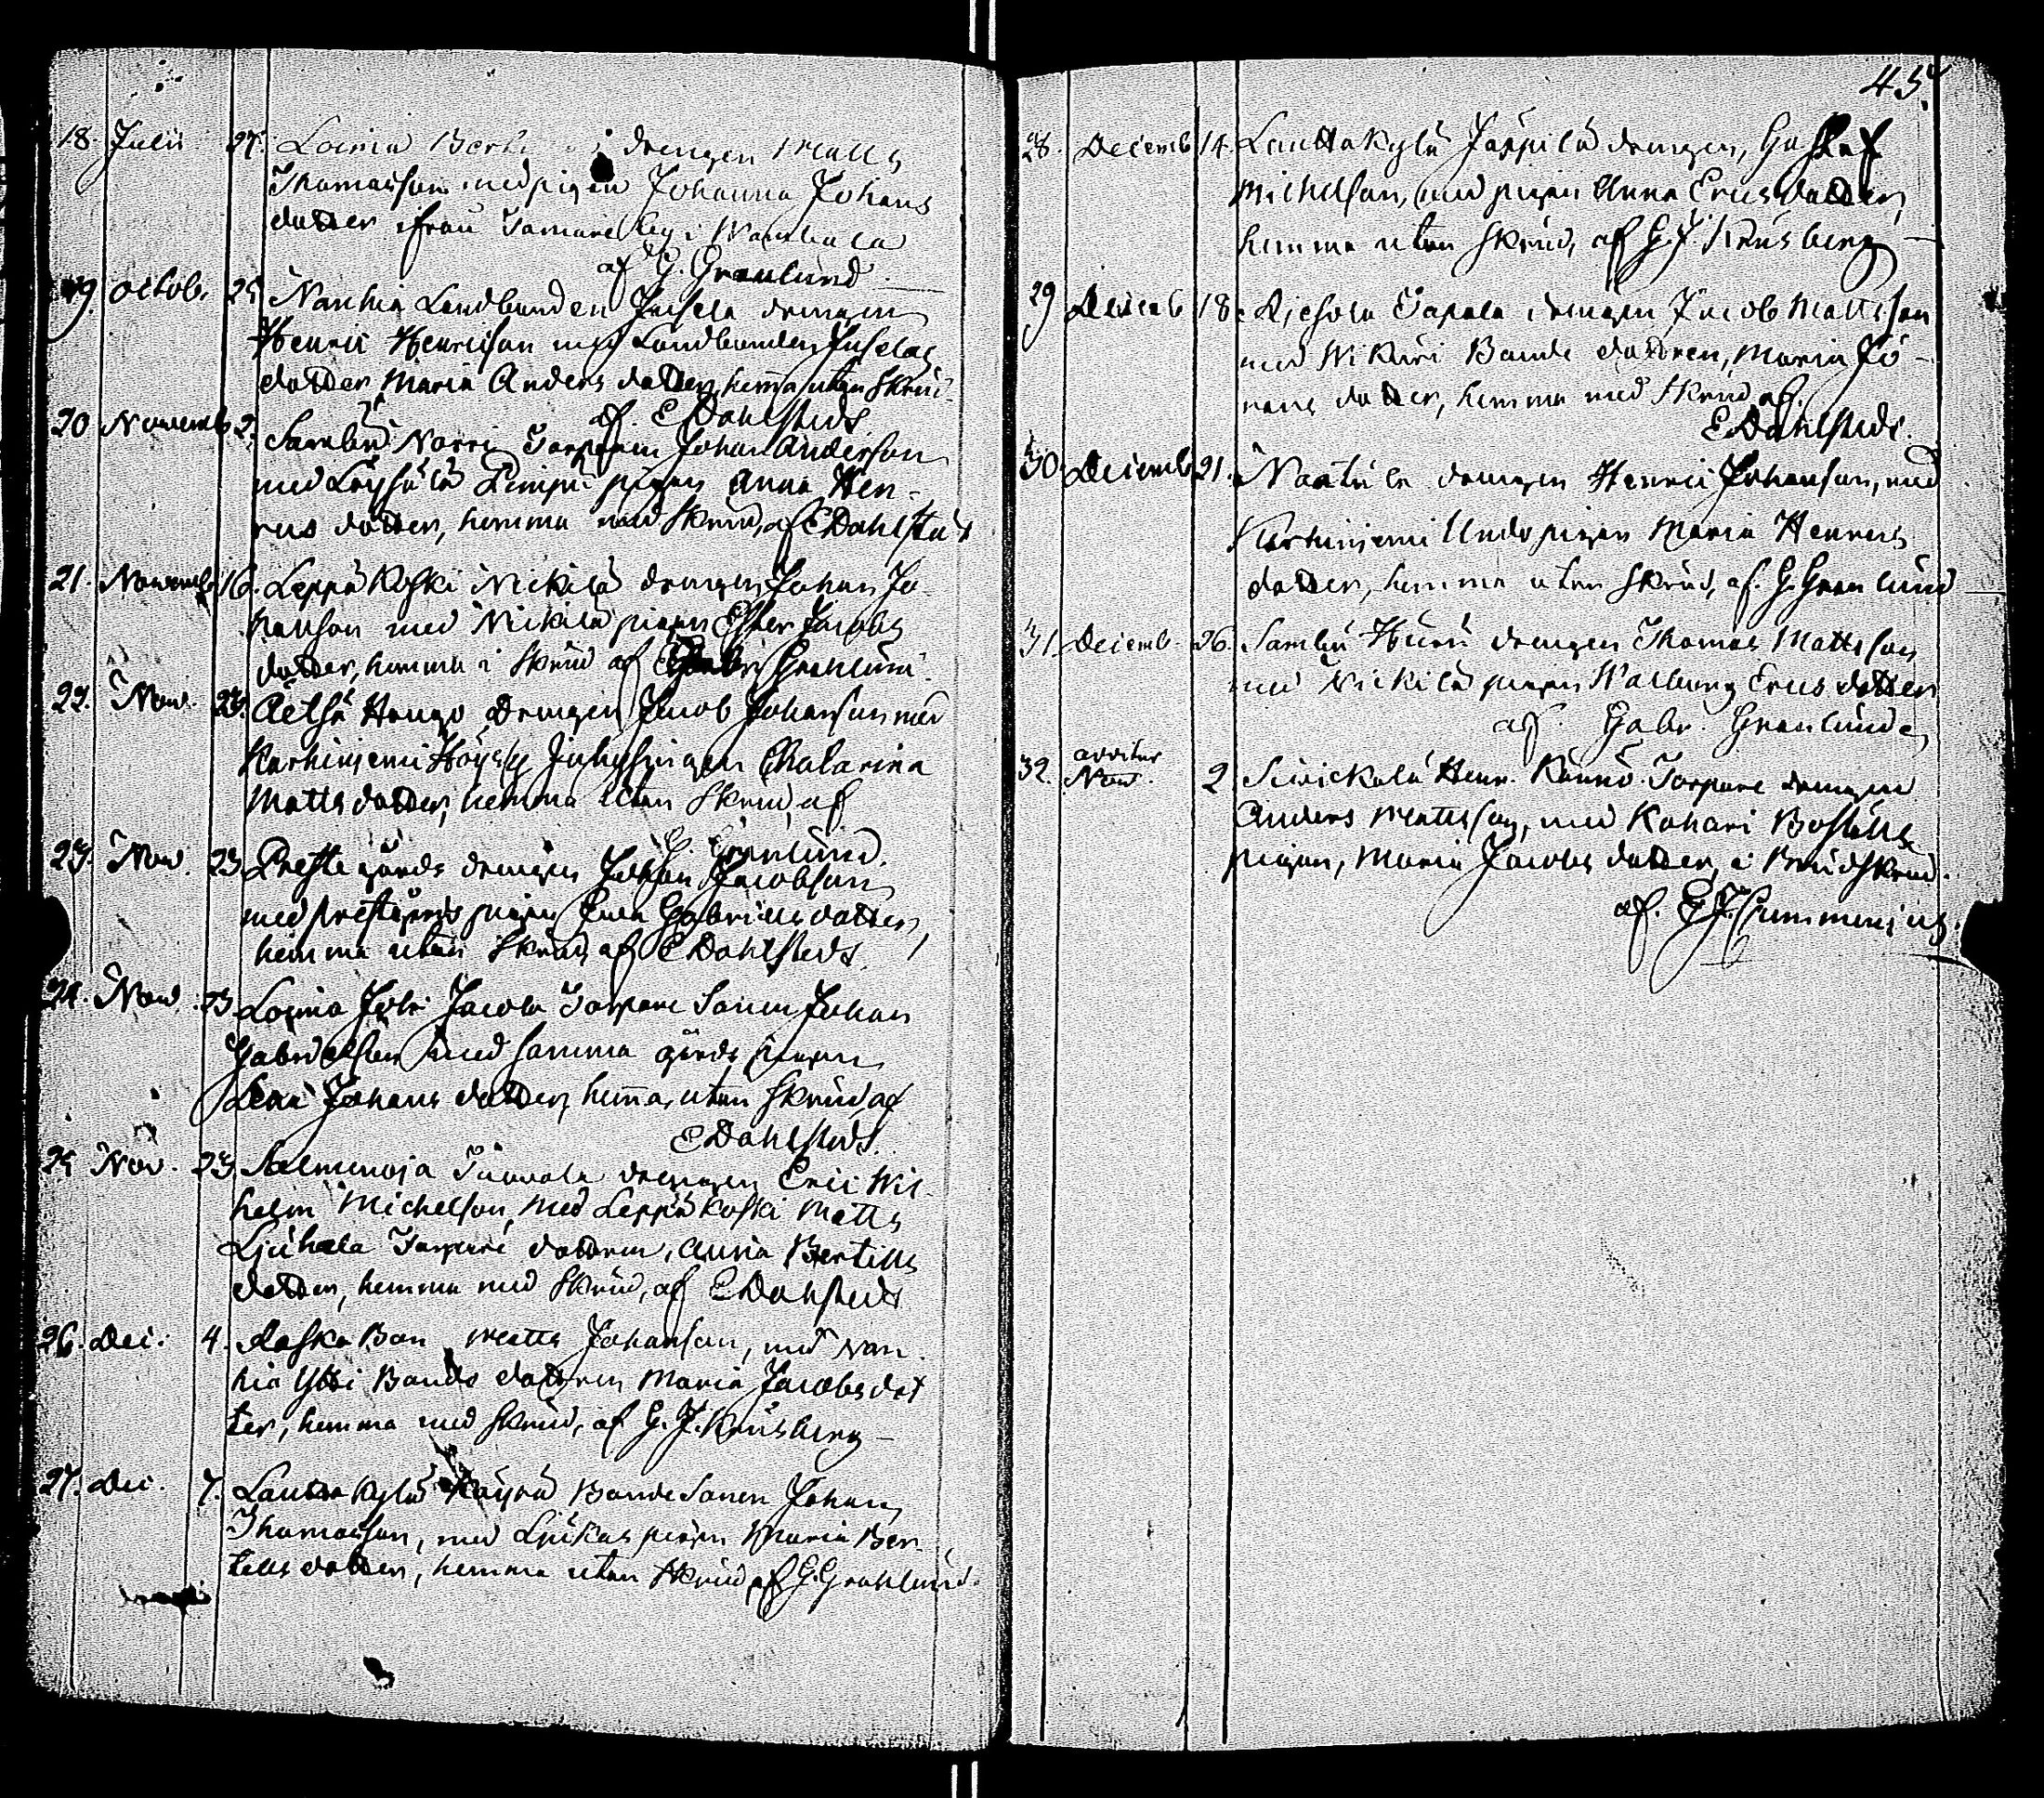 18. Julii 27. Loima drengen Matts
Thomasson med pigan Johanna Johans
dotter ifrån i Wambula
af G. Granlund
19. Octob. 25 Nanhia Landbonden Juhela drengen
Henric Henricson med Landbonden Juhelas
dotter Maria Anders dotter, hemma utan Skrud.
af. E Dahlsteds
20 Novemb 2. Sambu Norri Torparen Johan Anderson
med pigan Anna Hen-
rics dotter, hemma med Skrud, af E Dahlsteds
21. Novemb. 16. Leppäkoski Nickilä drengen Johan Jo-
hanson med Nickilä pigan Ester Jacobs
dotter, hemma i Skrud af Granlund.
22. Nov. 23. Hongo Drengen Jacob Johanson med
Karhiniemi pigan Chatarina
Matts dotter, hemma utan Skrud, af
G. Granlund.
23. Nov. 23. Prestegårds drengen Johan Jacobson
med prestgårds pigan Gabriels dotter,
hemma utan Skrud, af E Dahlsteds
24. Nov. 23. Loima Jacola Torpare Sonen Johan
Gabrielson med samma gårds pigan
Lena Johans dotter, hemma, utan Skrud, af
E Dahlsteds.
25 Nov. 23 drengen Eric Wil-
helm Michelson, med Leppäkoski Matts
Torpare dottren, Anna Bertills
dotter, hemma med Skrud, af E Dahlsteds
26. Dec. 4. Matts Johanson, med Nan-
hia Ytti Bonde dottren Maria Jacobs dot
ter, hemma med Skrud, af G. J. Krusberg
27. Dec. 7. Lauttakylä Bonde Sonen Johan
Thomasson, med pigan Maria Ber-
tills dotter, hemma utan Skrud, af G. Granlund.
45.
28. Decemb 14. Lauttakylä Jäppilä drengen, Gustaf
Michelson, med pigan Anna Erics dotter,
hemma utan Skrud, af G. J. Krusberg
29 Decemb 18. Tapala drengen Jacob Mattsson
med Bonde dottren, Maria Jo-
hans dotter, hemma med Skrud, af.
E Dahlsteds.
30. Decemb 21. drengen Henric Johanson, med
Karhiniemi Undo pigan Maria Henrics
dotter, hemma utan Skrud, af. G. Granlund
31. Decemb. 26. Sambu Huru drengen Thomas Mattsson
med Nickilä pigan Walborg Erics dotter
af. Gabr. Granlund
32. Nov. 2 Henr. Torpare drengen
Anders Mattsson, med Kohari Boställs
pigan, Maria Jacobs dotter, i Brudskrud.
af. E J Cummenius.